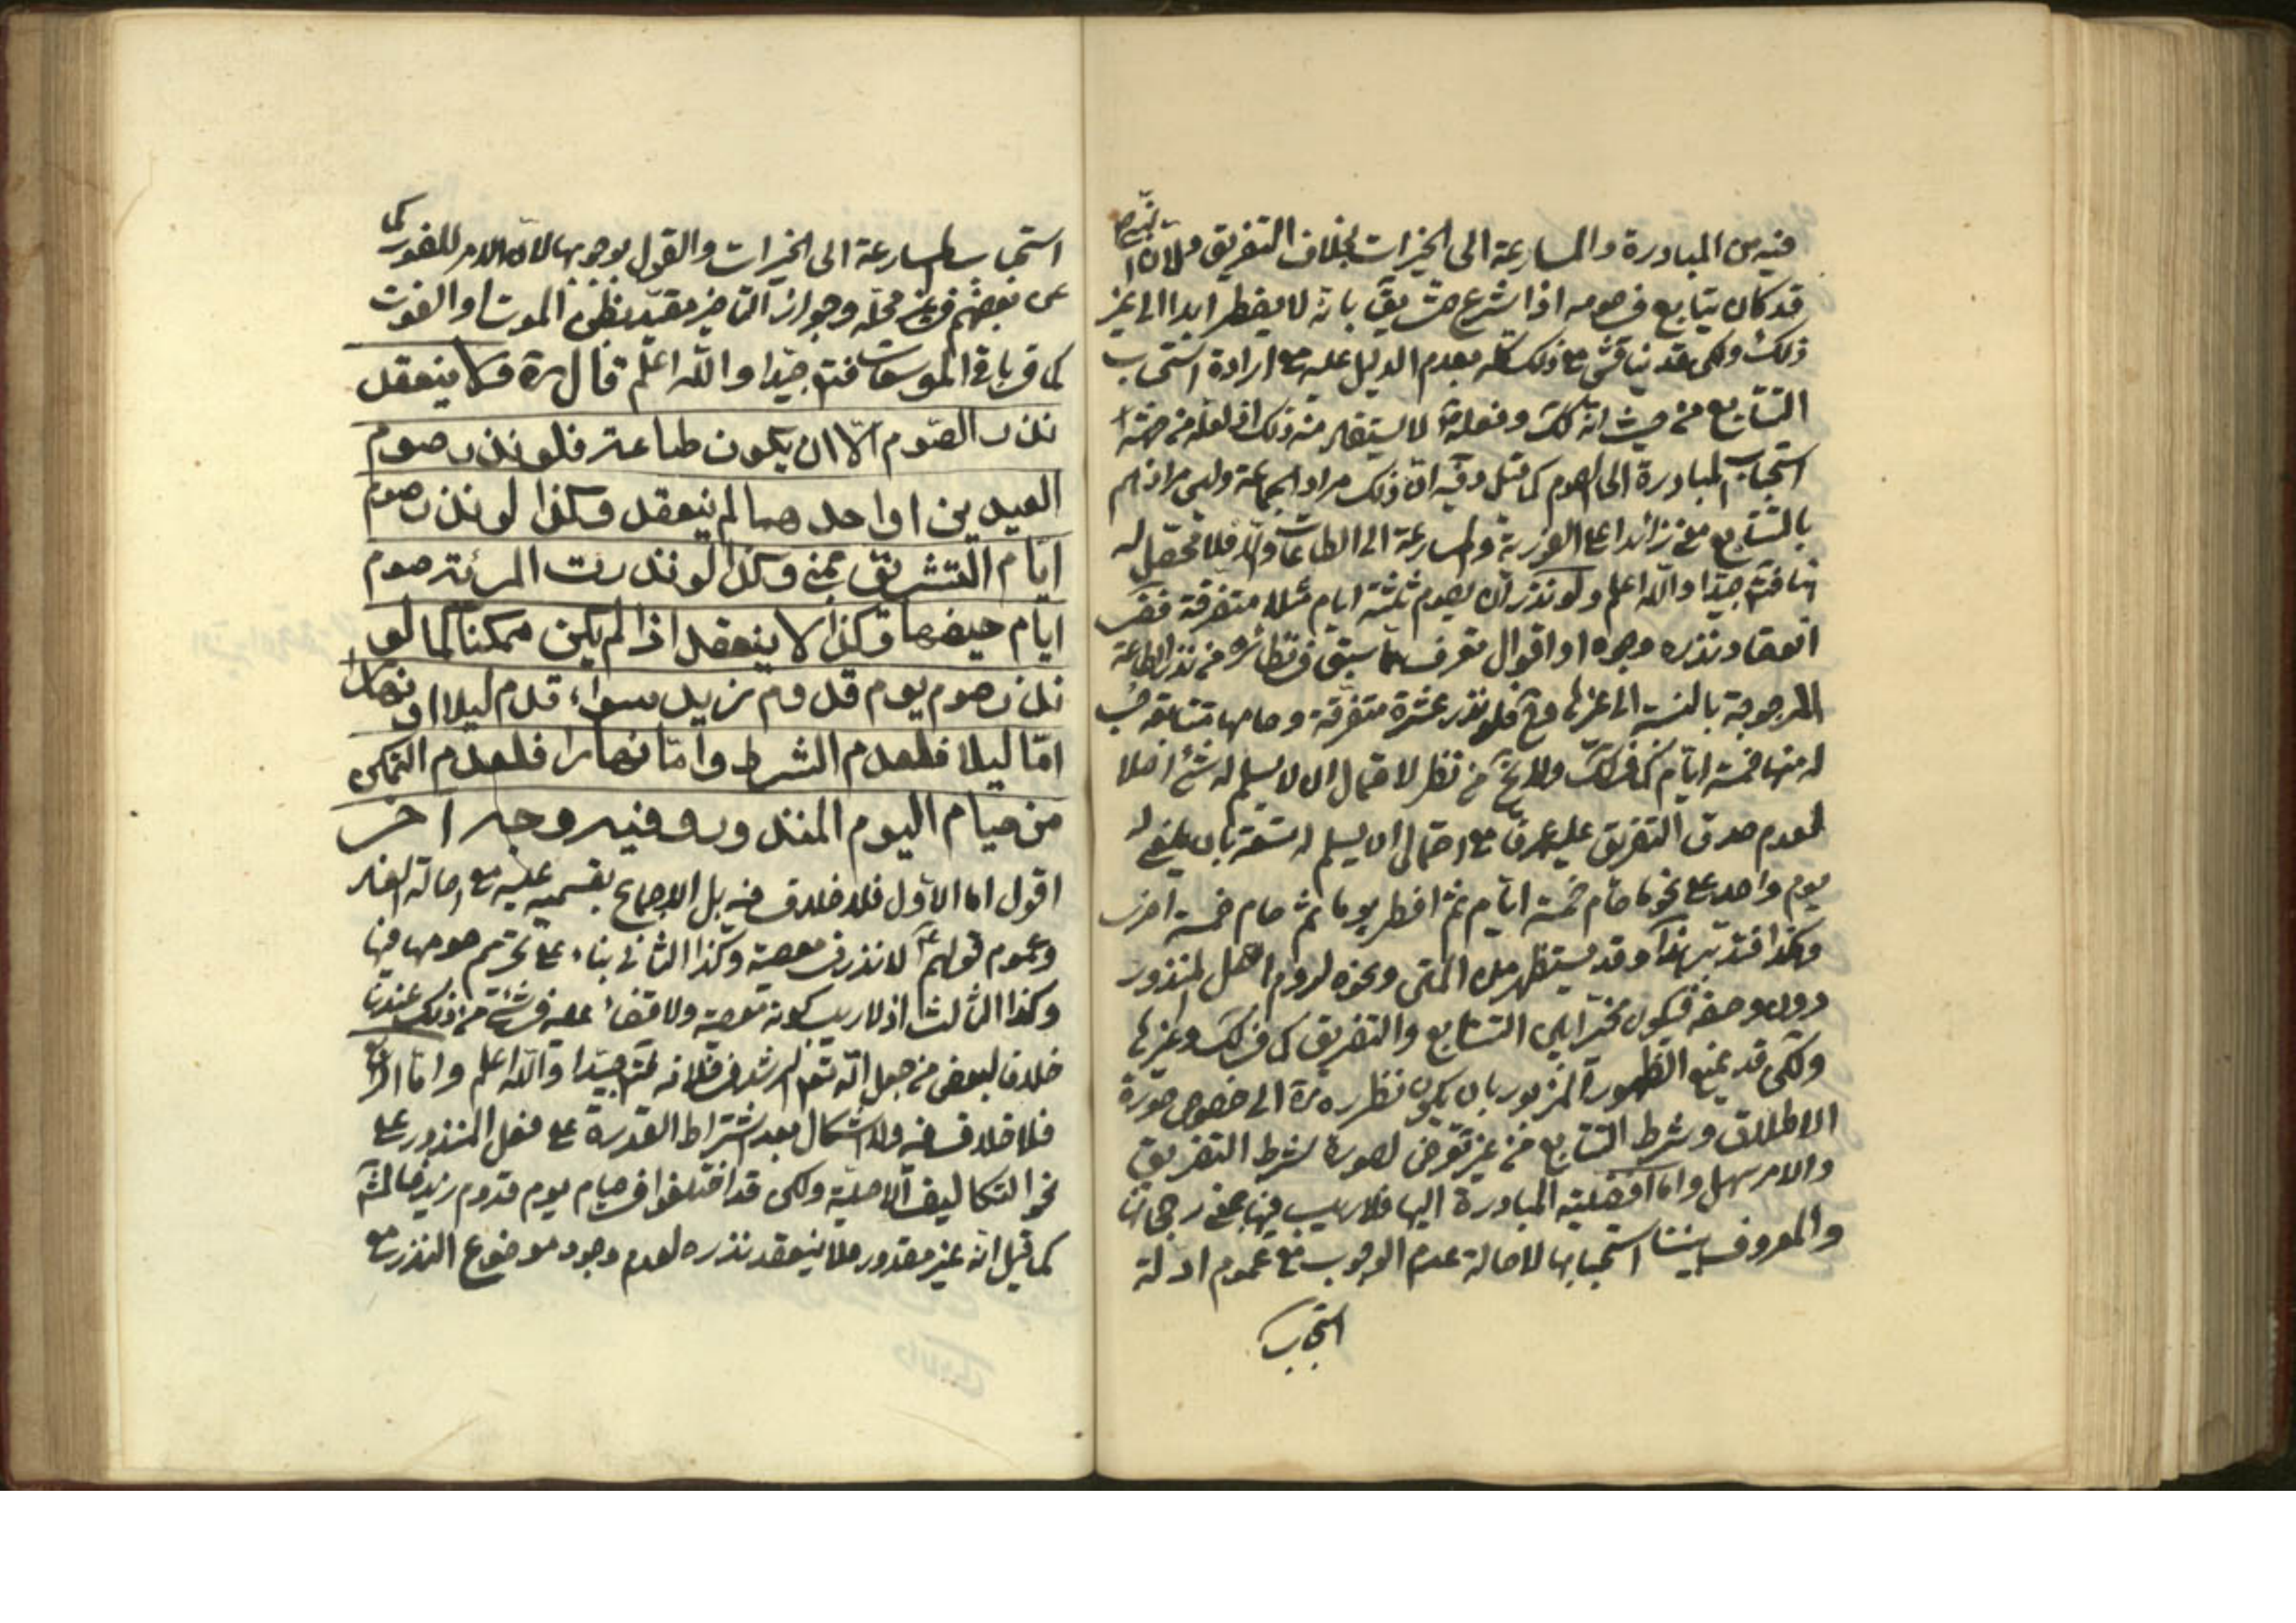 فيه من المبادرة والمسارعة الى الخيرات بخلاف التفريق ولان النبي ص
قد كان يتابع في صومه اذا شرع حتى يق بانه لا يفطر ابدا الى غير
ذلك ولكن قد يناقش في ذلك كله بعدم الدليل عليه مع ارادة استحباب
التتابع من حيث انه كك وفعله لا يستفاد منه ذلك اذ لعله من جهة
استحباب المبادرة الى الصوم كما قيل وفيه ان ذلك مراد الجماعة وليس مرادهم
بالتتابع معنى زائدا على الفورية والمسارعة الى الطاعات والا فلا محصل له
فافهم جيدا والله اعلم ولو نذر ان يصوم ثلثة ايام مثلا متفرقة ففي
انعقاد نذره وجوه او اقوال تعرف مما سبق في نظائره من نذر الطاعة
المرجوحة بالنسبة الى غيرها وح فلو نذر عشرة متفرقة وصامها متتابعة حسب
له منها خمسة ايام كما في ك ولا يخ من نظر لاحتمال ان لا يسلم له شئ اصلا
لعدم صدق التفريق عليه عرفا مع احتمال ان يسلم له تسعة بان يلغى له
يوم واحد على نحو ما صام خمسة ايام ثم افطر يوما ثم صام خمسة اخرى
وهكذا فتدبر هذا وقد يستظهر من المتن ونحوه لزوم اصل المنذور
دون وصفه فيكون مخيرا بين التتابع والتفريق كما في ك وغيرها
ولكن قد يمنع الظهور المزبور بان يكون نظره ره الى خصوص صورة
الاطلاق وشرط التتابع من غير تعرض لصورة شرط التفريق
والامر سهل واما افضلية المبادرة اليها فلا ريب فيها بمعنى رجحانها
والمعروف بيننا استحبابها لاصالة عدم الوجوب مع عموم ادلة
استحباب
استحباب المسارعة الى الخيرات والقول بوجوبها لان الامر للفور كما
عن بعضهم في غير محله وجواز التاخير مقيد بظن الموت او الفوت
كما في باقي الموسعات فتدبر جيدا والله اعلم قال ره ولا ينعقد
نذر الصوم الا ان يكون طاعة فلو نذر صوم
العيدين او احدهما لم ينعقد وكذا لو نذر صوم
ايام التشريق بمنى وكذا لو نذرت المرئة صوم
ايام حيضها وكذا لا ينعقد اذا لم يكن ممكنا كما لو
نذر صوم يوم قدوم زيد سواء قدم ليلا او نهارا
اما ليلا فلعدم الشرط واما نهارا فلعدم التمكن
من صيام اليوم المنذور وفيه وجه اخر
اقول اما الاول فلا خلاف فيه بل الاجماع بقسميه عليه مع اصالة الفساد
وعموم قولهم ع لا نذر في معصية وكذا الثاني بناء على تحريم صومها فيها
وكذا الثالث اذ لا ريب بكونه معصية ولا قضاء عليه في شئ من ذلك عندنا
خلافا لبعض من جعل فتدبر جيدا والله اعلم واما الرابع
فلا خلاف فيه ولا اشكال بعد اشتراط القدرة على فعل المنذور على
نحو التكاليف الاصلية ولكن قد اختلفوا في صيام يوم قدوم زيد
كما قيل انه غير مقدور فلا ينعقد نذره لعدم وجود موضوع النذر مع